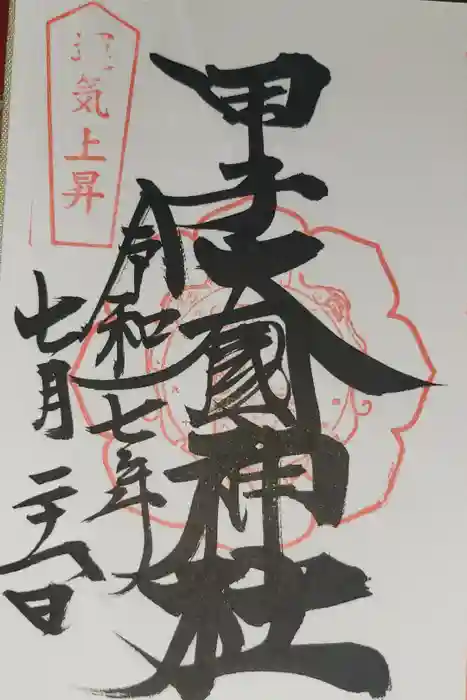 甲子大國神社
令和七年
運気上昇
七月二十八日